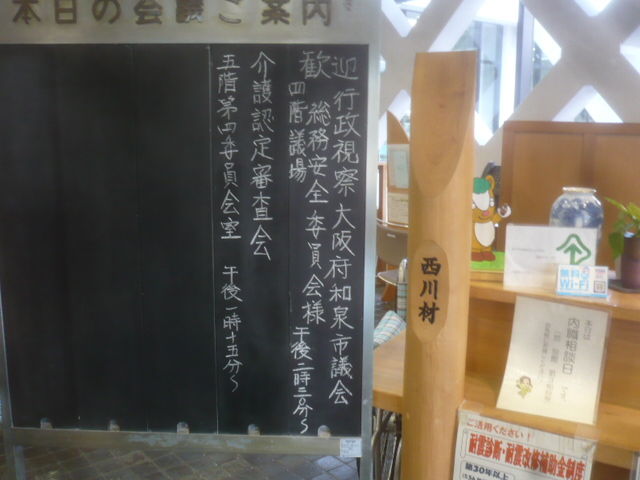 本日の会議ご案内
歓迎 行政視察 大阪府和泉市議会
総務安全委員会様
四階議場
午後二時三〇分〜
介護認定審査会
五階第四委員会室 午後一時十五分〜
西川材
無料
Wi-Fi
本日は
内職相談日
です。
ご活用ください!
耐震診断・耐震改修補助金制度
築30年以上